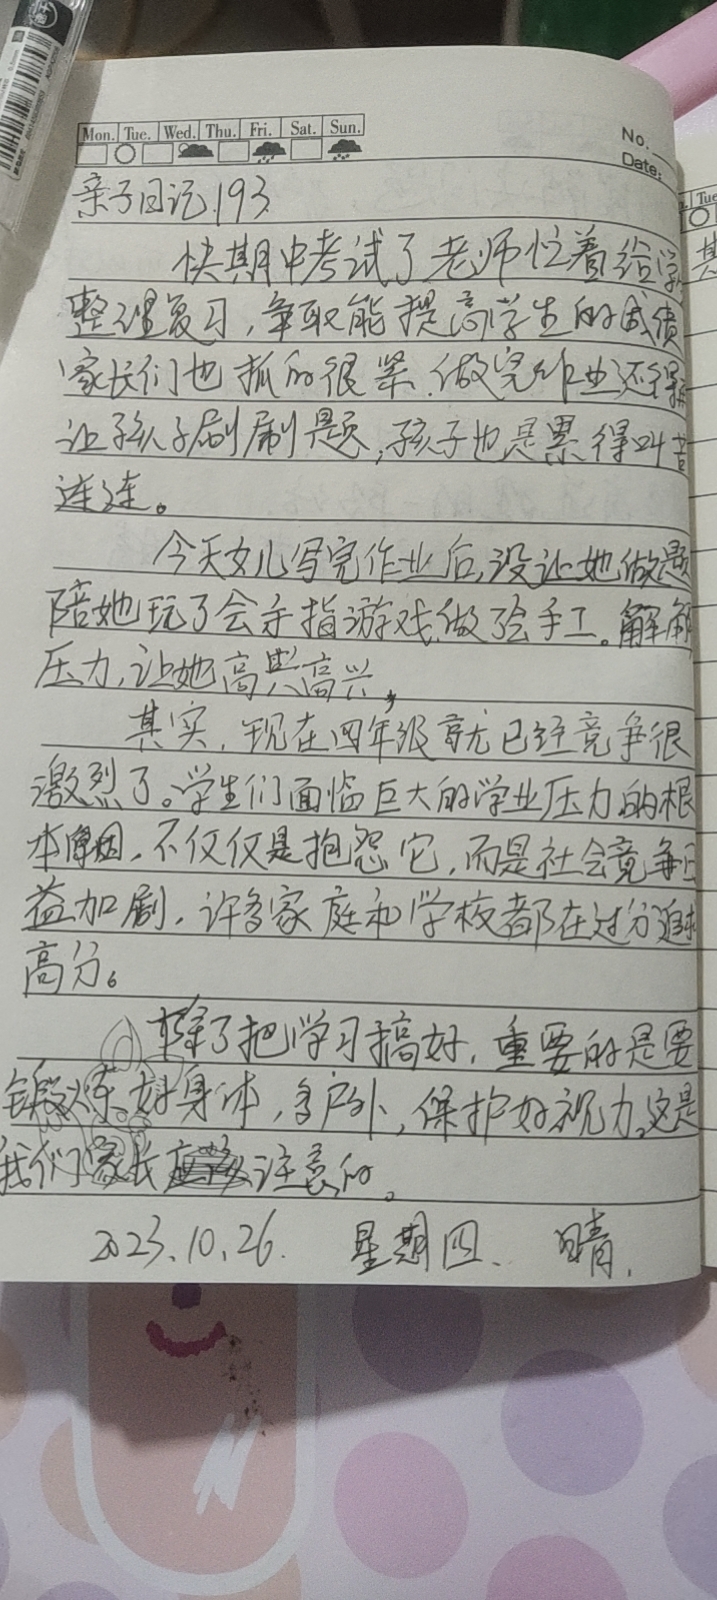 Mon. Tue. Wed. Thu. Fri. Sat. Sun.
No.
Date:
亲子日记.193
快期中考试了老师忙着给学
整理复习,争取能提高学生的成绩
家长们也抓的很紧.做完作业还得
让孩子刷刷题,孩子也是累得叫苦
连连。
今天女儿写完作业后,没让她做题
陪她玩了会手指游戏.做了会手工。解解
压力,让她高兴高兴,
其实,现在四年级就已经竞争很
激烈了。学生们面临巨大的学业压力的根
本原因,不仅仅是抱怨它,而是社会竞争日
益加剧,许多家庭和学校都在过分追求
高分。
除了把学习搞好,重要的是要
锻炼好身体,多户外,保护好视力,这是
我们家长应该注意的。
2023.10.26. 星期四、 晴.
Tue
其